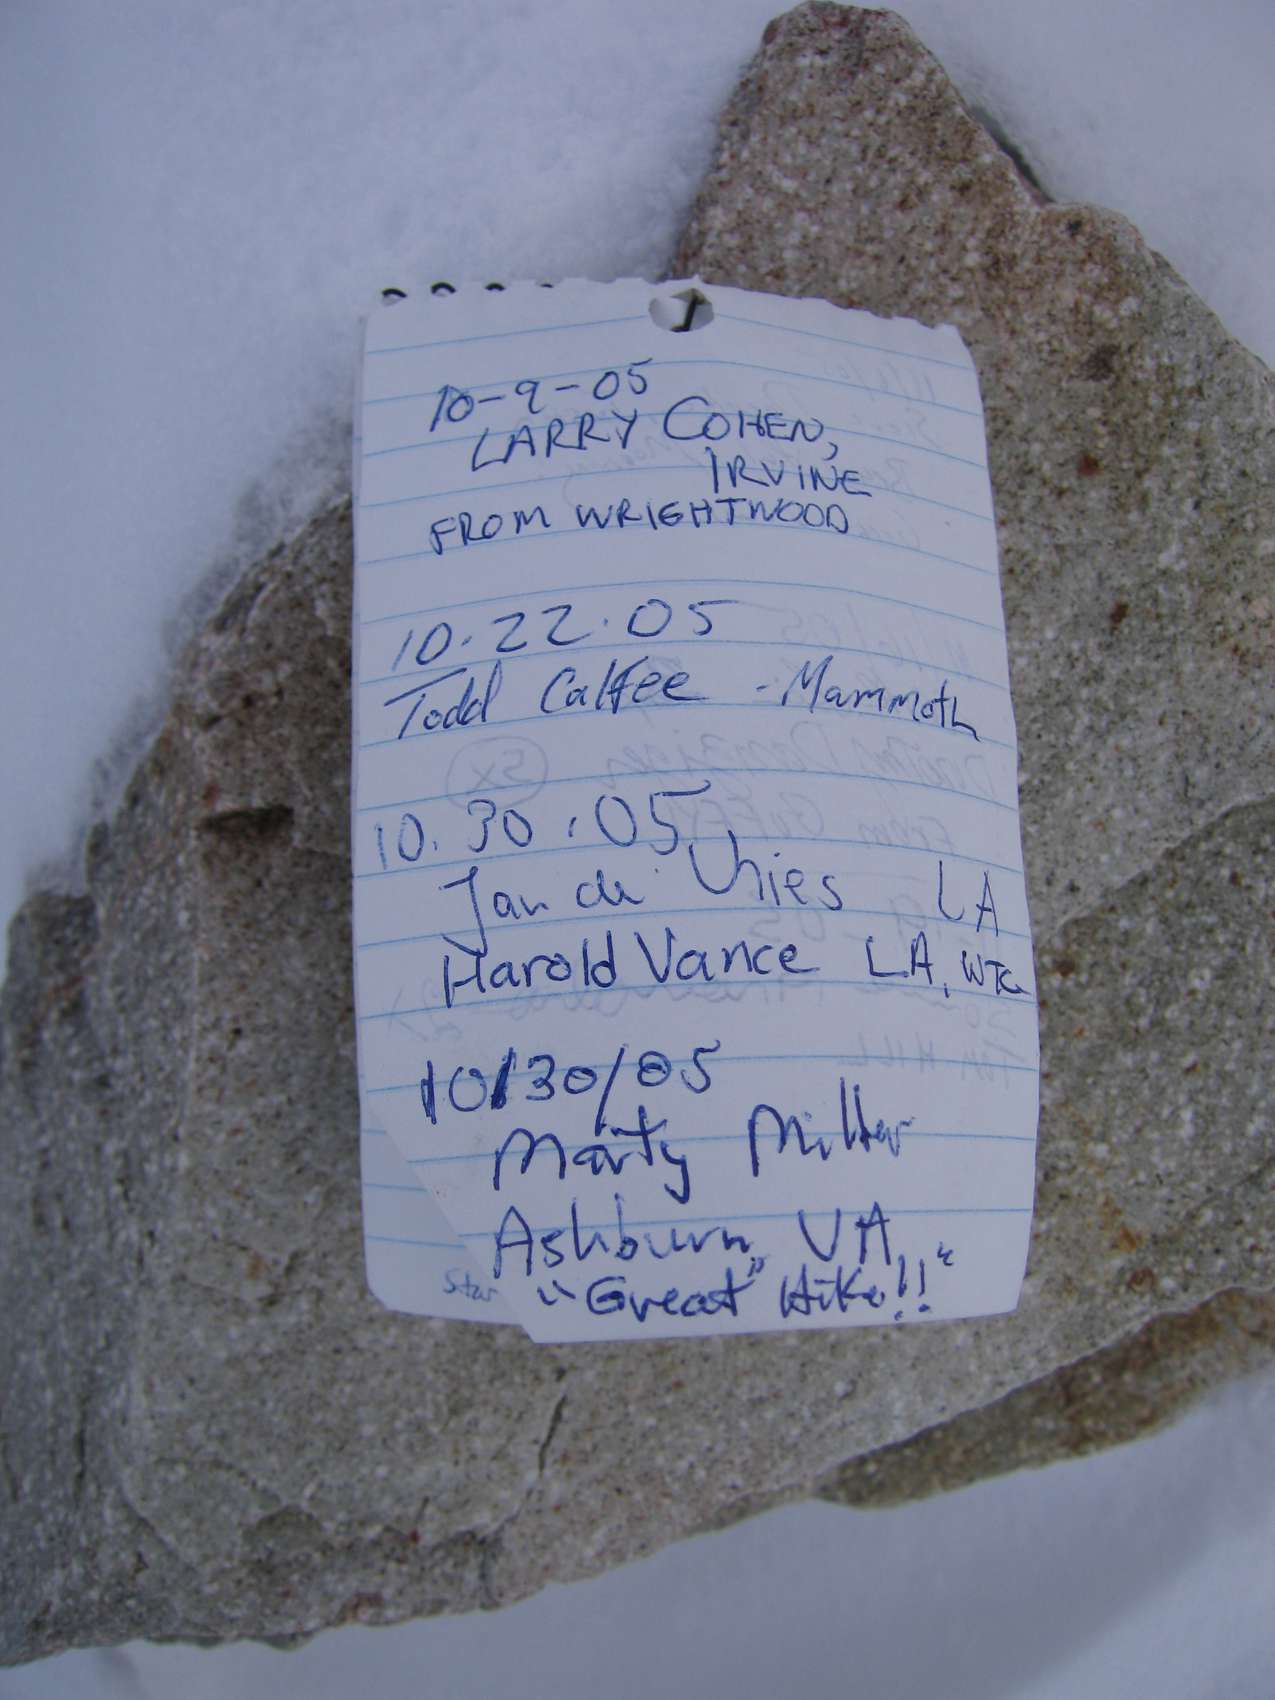 10-9-05
LARRY COHEN,
IRVINE
FROM WRIGHTWOOD
10.22.05
Todd Calfee - Mammoth
10.30.05
Jan de Vries LA
Harold Vance LA, WTC
10/30/05
Marty Miller
Ashburn, VA
"Great" Hike!!"
Star